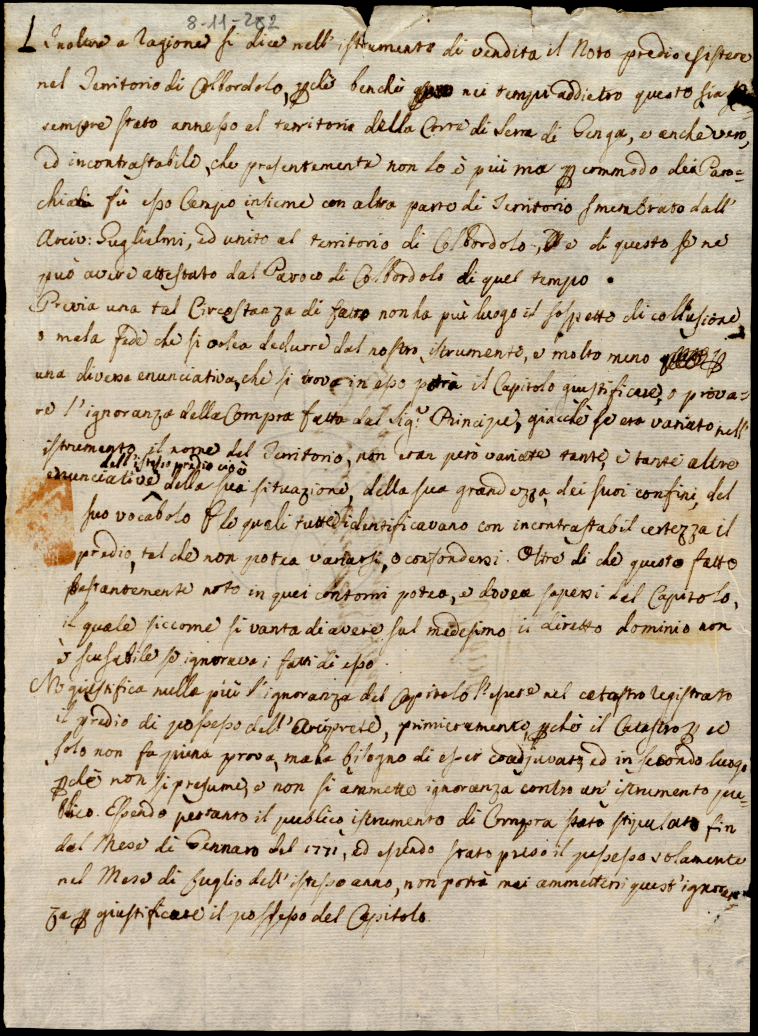 8-11-282
Inoltre a ragione si dice nell'istrumento di vendita il Noto predio esistere
nel Territorio di Colbordolo, pchè benchè nei tempi addietro questo sia
sempre stato annesso al territorio della Corte di Serra di Genga, e anche vero,
ed incontrastabile, che presentemente non lo è più ma p commodo dei Paro=
chiali fù esso Campo insieme con altra parte di Territorio smembrato dall'
Arciv: Guglielmi, ed unito al territorio di Colbordolo, e di questo se ne
può avere attestato dal Paroco di Colbordolo di quel tempo.
Previa una tal Circostanza di fatto non ha più luogo il sospetto di collusione
o mala fede che si volea dedurre dal nostro istrumento, e molto meno p
una diversa enunciativa, che si trova in esso potrà il Capitolo giustificare, o prova=
re l'ignoranza della Compra fatta dal Sig.r Principe, giacchè se era variato nell'
istrumento il nome del Territorio, non eran però variate tante, e tante altre
dell'istesso predio cioè
enunciative della sua situazione, della sua grandezza, dei suoi confini, del
suo vocabolo le quali tutte identificavano con incontrastabil certezza il
predio, tal che non potea variarsi, o confondersi. Oltre di che questo fatto
bastantemente noto in quei contorni potea, e dovea sapersi dal Capitolo,
il quale siccome si vanta di avere sul medesimo il diretto dominio non
è scusabile se ignorava i fatti di esso.
Nè giustifica nulla più l'ignoranza del Capitolo l'essere nel catastro registrato
il predio di possesso dell'Arciprete, primieramente, pchè il Catastro p se
solo non fa piena prova, ma ha bisogno di esser coadjuvato, ed in secondo luogo
pchè non si presume, e non si ammette ignoranza contro un' istrumento pu=
blico. Essendo pertanto il publico istrumento di Compra stato stipulato fin
dal Mese di Gennaro del 1771, ed essendo stato preso il possesso solamente
nel Mese di Luglio dell'istesso anno, non potrà mai ammettersi quest'ignoran=
za p giustificare il possesso del Capitolo.